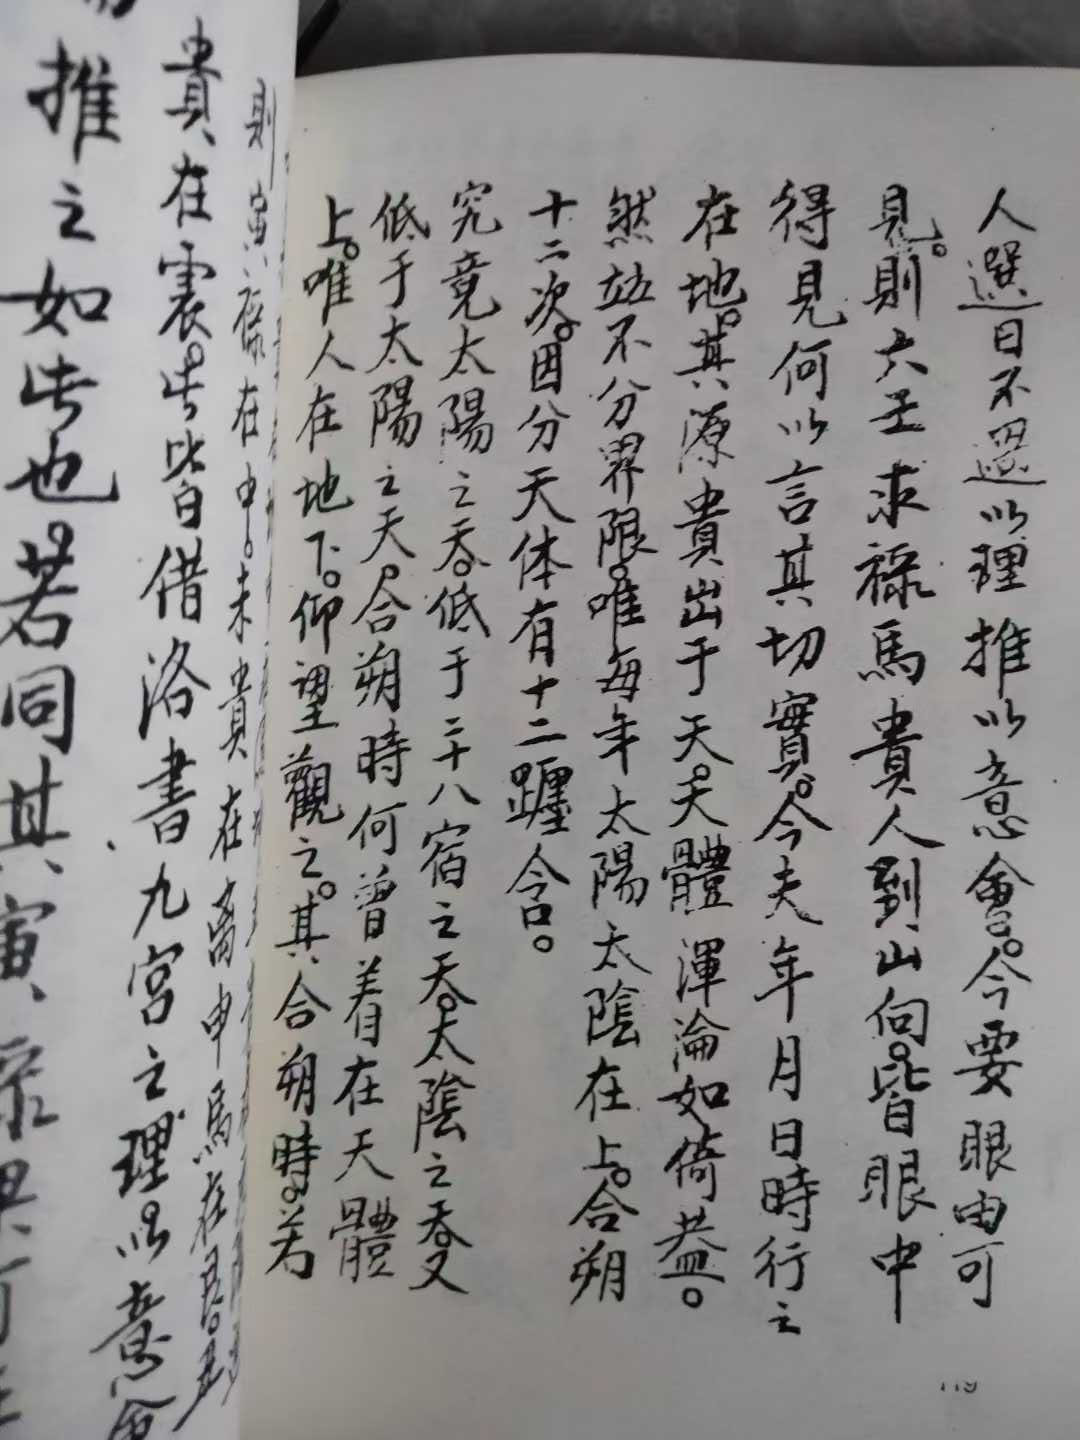 人選日不過以理推以意會。今要眼由可
見。則六壬求祿馬貴人到山向。皆眼中
得見何以言其切實。今夫年月日時行之
在地。其源貴出于天。天體渾淪如倚蓋。
然竝不分界限。唯每年太陽太陰在上。合朔
十二次。因分天体有十二躔舍。
究竟太陽之天。低于二十八宿之天。太陰之天。又
低于太陽之天。合朔時何曾着在天體
上。唯人在地下。仰望觀之。其合朔時。若
則寅祿在申。未貴在离申馬在艮。
貴在震。此皆借洛書九宮之理。以意會
推之如此也。若同其寅祿
119